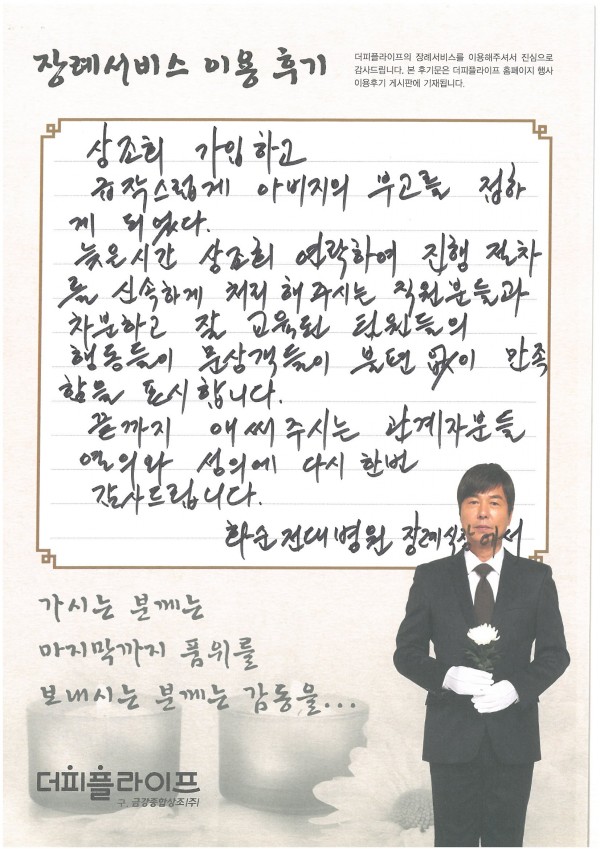 장례서비스 이용 후기
더피플라이프의 장례서비스를 이용해주셔서 진심으로
감사드립니다. 본 후기문은 더피플라이프 홈페이지 행사
이용후기 게시판에 기재됩니다.
상조회 가입하고
급작스럽게 아버지의 부고를 접하
게 되었다.
늦은시간 상조회 연락하여 진행 절차
를 신속하게 처리해주시는 직원분들과
차분하고 잘 교육된 팀원들의
행동들이 문상객들이 불편 없이 만족
함을 표시합니다.
끝까지 애써주시는 관계자분들
열의와 성의에 다시 한번
감사드립니다.
화순전대병원 장례식장에서
가시는 분께는
마지막까지 품위를
보내시는 분께는 감동을...
더피플라이프
구. 금강종합상조(주)